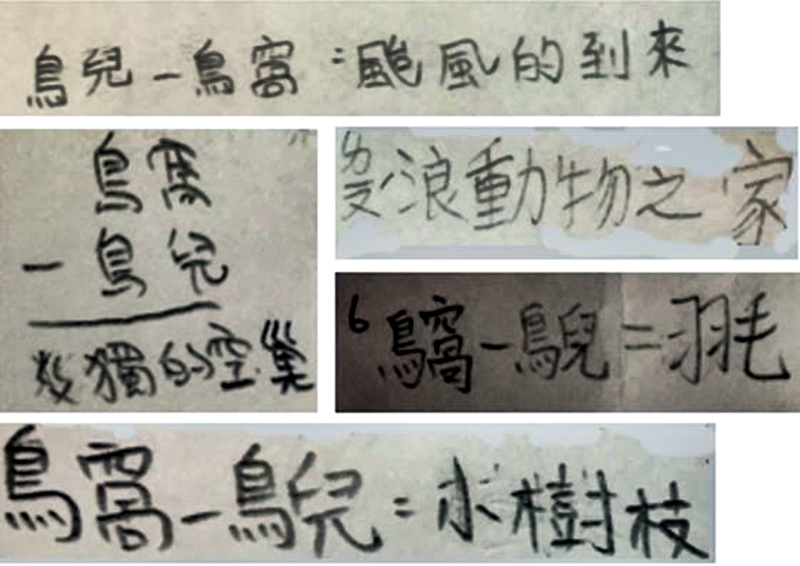 鳥兒－鳥窩=颱風的到來
鳥窩
－鳥兒
獨的空巢
浪動物之家
6 鳥窩－鳥兒=羽毛
鳥窩－鳥兒=樹枝